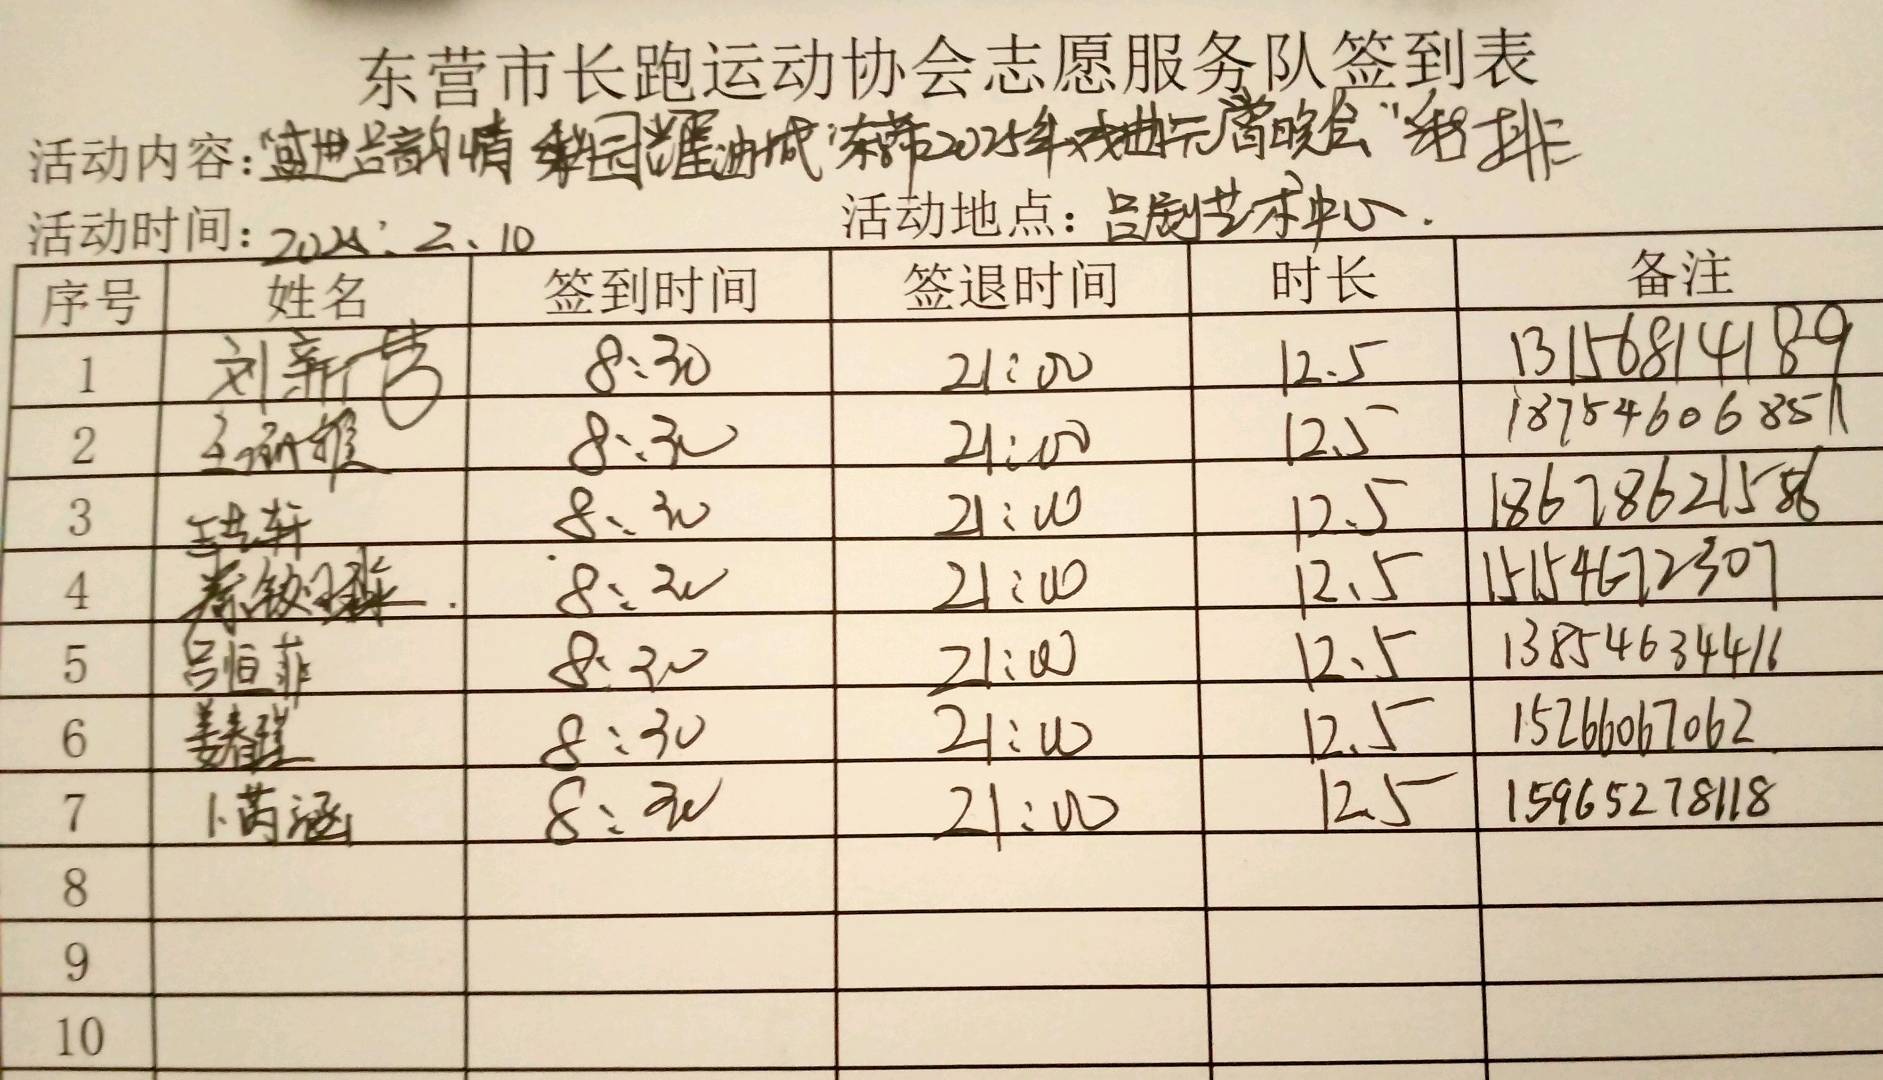 东营市长跑运动协会志愿服务队签到表
活动内容:"盛世吕韵情 梨园耀油城"东营2025年戏曲元宵晚会"彩排
活动时间:2025.2.10 活动地点:吕剧艺术中心.
序号 姓名 签到时间 签退时间 时长 备注
1 刘新营 8:30 21:00 12.5 13156814189
2 8:30 21:00 12.5 18754606851
3 8:30 21:00 12.5 18678621586
4 8:30 21:00 12.5 15154672307
5 吕恒菲 8:30 21:00 12.5 13854634416
6 姜春 8:30 21:00 12.5 15266067062
7 卜芮涵 8:30 21:00 12.5 15965278118
8
9
10